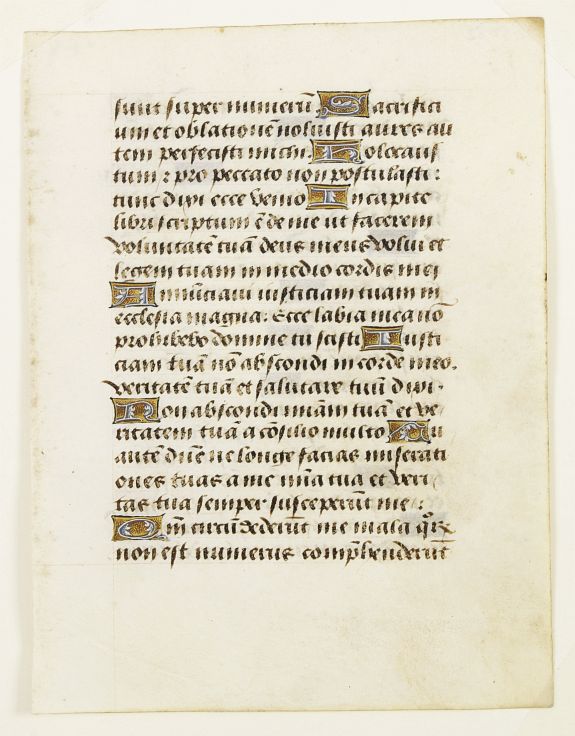 sunt super numerū. Sacrifici
um et oblationē noluisti aures au
tem perfecisti michi. Holocaus
tum : pro peccato non postulasti :
tunc dixi ecce venio In capite
libri scriptum ē de me ut facerem
voluntatē tuā deus meus volui et
legem tuam in medio cordis mei
Annūciavi iusticiam tuam in
ecclesia magna: Ecce labia mea nō
prohibebo domine tu scisti Iusti
ciam tuā nō abscondi in corde meo.
veritatē tuā et salutare tuū dixi.
Non abscondi miām tuā et ve
ritatem tuā a cōsilio multo Tu
autē dūe ne longe facias miserati
ones tuas a me mīa tua et veri
tas tua semper susceperūt me :
Qm̄ circūdederūt me mala qr̄
non est numerus comp̄henderūt